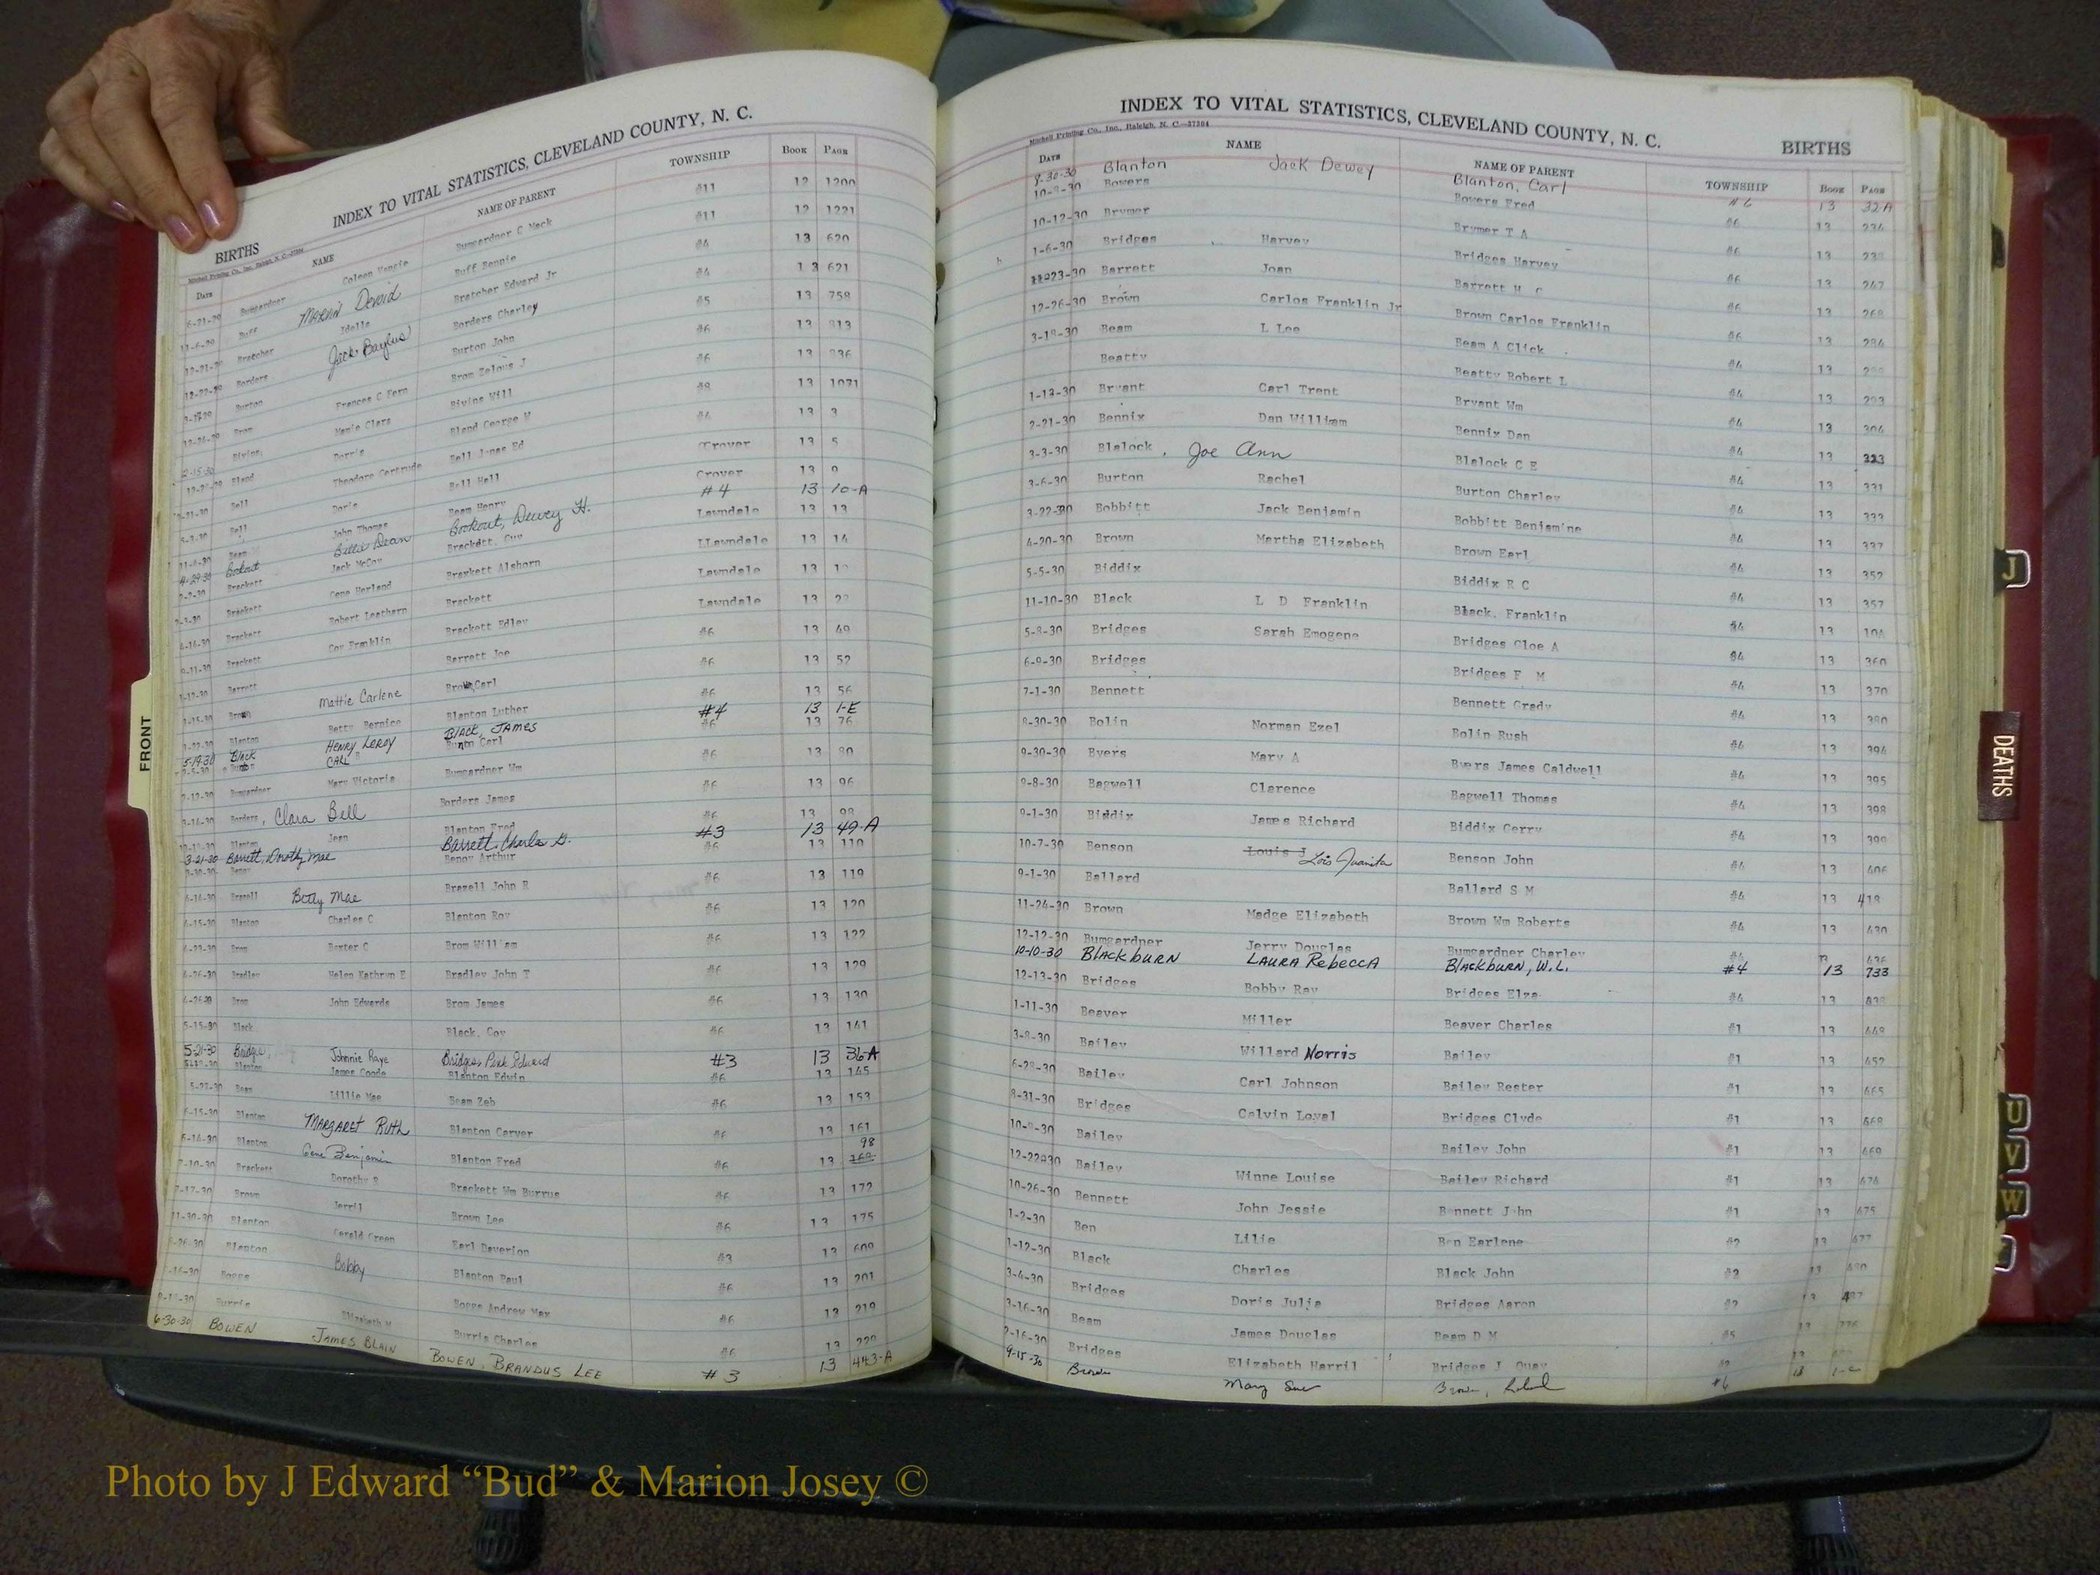 INDEX TO VITAL STATISTICS, CLEVELAND COUNTY, N. C.
BIRTHS
Mitchell Printing Co., Inc., Raleigh, N. C.
DATE NAME NAME OF PARENT TOWNSHIP BOOK PAGE
6-21-29 Bumgardner Coleen Bumgardner C Mack #11 12 1200
11-6-29 Buff MARVIN DEVOID Buff Bennie #11 12 1221
Bratcher Idella Bratcher Edward Jr #4 13 620
Borders Jack Baylus Borders Charley #4 13 621
Burton Burton John #5 13 758
Brom Frances C Fern Brom Zelous J #6 13 813
Bivins Mamie Clara Bivins Will #6 13 836
Bland Bland George W #8 13 1071
Bell Theodore Gertrude Bell Jonas Ed #4 13 3
Bell Doris Bell Hall Grover 13 5
Beam John Thomas Beam Henry Grover 13 9
4-29-30 Bookout Billie Dean Bookout, Dewey H. #4 13 10-A
Brackett Jack McCoy Brackett. Guy Lawndale 13 13
Brackett Gene Herland Braykett Alshorn LLawndale 13 14
Brackett Robert Leathern Brackett Lawndale 13
Brackett Coy Franklin Brackett Edley Lawndale 13
Barrett Barrett Joe #6 13 49
Brown Mattie Carlene Brown Carl #6 13 52
Blanton Betty Bernice Blanton Luther #6 13 56
5-19-30 Black HENRY LEROY BLACK, JAMES #4 13 1-E
Burton CARL Burton Carl #6 13 76
2-12-30 Bumgardner Mary Victoria Bumgardner Wm #6 13 80
3-14-30 Borders, Clara Bell Borders James #6 13 96
Blanton Jean Blanton Fred #6 13 98
3-21-30 Barrett, Dorothy Mae Barrett, Charles G. #3 13 49-A
3-30-30 Benoy Benoy Arthur #6 13 110
Brazell Betty Mae Brazell John R #6 13 119
4-15-30 Blanton Charles C Blanton Roy #6 13 120
4-23-30 Brom Baxter C Brom William #6 13 122
4-26-30 Bradley Helen Kathryn E Bradley John T #6 13 129
Brom John Edwards Brom James #6 13 130
5-15-30 Black Black. Coy #6 13 141
5-21-30 Bridges, Johnnie Raye Bridges, Pink Edward #3 13 36-A
Blanton James Goode Blanton Edwin #6 13 145
5-22-30 Beam Lillie Mae Beam Zeb #6 13 153
6-15-30 Blanton MARGARET RUTH Blanton Carver #6 13 161
6-14-30 Blanton Gene Benjamin Blanton Fred #6 13 98
7-10-30 Brackett Dorothy S Brackett Wm Burrus #6 13 172
7-17-30 Brown Jerril Brown Lee #6 13 175
11-30-30 Blanton Gerald Green Earl Daverion #3 13 609
Blanton Bobby Blanton Paul #6 13 201
Boggs Boggs Andrew Max #6 13 219
Burris Elizabeth M Burris Charles #6 13 220
6-30-30 BOWEN JAMES BLAIN BOWEN, BRANDUS LEE #3 13 443-A
FRONT
INDEX TO VITAL STATISTICS, CLEVELAND COUNTY, N. C.
BIRTHS
Mitchell Printing Co., Inc., Raleigh, N. C.—37304
DATE NAME NAME OF PARENT TOWNSHIP BOOK PAGE
8-30-30 Blanton Jack Dewey Blanton, Carl #6 13 32-A
10-8-30 Bowers Bowers Fred #6 13 234
10-12-30 Brymer Brymer T A #6 13
1-6-30 Bridges Harvey Bridges Harvey #6 13 247
Barrett Joan Barrett H C #6 13 268
12-26-30 Brown Carlos Franklin Jr Brown Carlos Franklin #6 13 284
3-18-30 Beam L Lee Beam A Click #4 13
Beatty Beatty Robert L #4 13 293
1-13-30 Bryant Carl Trent Bryant Wm #4 13 304
2-21-30 Bennix Dan William Bennix Dan #4 13 323
3-3-30 Blalock, Joe Ann Blalock C E #4 13 331
3-6-30 Burton Rachel Burton Charley #4 13 333
3-22-30 Bobbitt Jack Benjamin Bobbitt Benjamine #4 13 337
4-20-30 Brown Martha Elizabeth Brown Earl #4 13 352
5-5-30 Biddix Biddix R C #4 13 357
11-10-30 Black L D Franklin Black. Franklin #4 13 10A
5-8-30 Bridges Sarah Emogene Bridges Cloe A #4 13 360
6-9-30 Bridges Bridges F M #4 13 370
7-1-30 Bennett Bennett Grady #4 13 380
8-30-30 Bolin Norman Ezel Bolin Rush #4 13 394
9-30-30 Byers Mary A Byers James Caldwell #4 13 395
9-8-30 Bagwell Clarence Bagwell Thomas #4 13 398
9-1-30 Biddix James Richard Biddix Gerry #4 13 399
10-7-30 Benson Louis J Lois Juanita Benson John #4 13 406
9-1-30 Ballard Ballard S M #4 13 418
11-24-30 Brown Madge Elizabeth Brown Wm Roberts #4 13 430
12-12-30 Bumgardner Jerry Douglas Bumgardner Charley #4 13 436
10-10-30 BLACKBURN LAURA REBECCA BLACKBURN, W.L. #4 13 733
12-13-30 Bridges Bobby Ray Bridges Elza #4 13 438
1-11-30 Beaver Miller Beaver Charles #1 13 448
3-8-30 Bailey Willard Norris Bailey #1 13 457
6-28-30 Bailey Carl Johnson Bailey Rester #1 13 465
8-31-30 Bridges Calvin Loyal Bridges Clyde #1 13 468
10-8-30 Bailey Bailey John #1 13 469
12-22-30 Bailey Winne Louise Bailey Richard #1 13 474
10-26-30 Bennett John Jessie Bennett John #1 13 475
1-2-30 Ben Lilie Ben Earlene #2 13 477
1-12-30 Black Charles Black John #2 13 480
3-4-30 Bridges Doris Julia Bridges Aaron #2 13 487
3-16-30 Beam James Douglas Beam D M #5 13 776
2-16-30 Bridges Elizabeth Harril Bridges J Quay #2 13
9-15-30 Brown Mary Sue Brown, Roland #6 13
J
DEATHS
U
V
W
Photo by J Edward “Bud” & Marion Josey ©